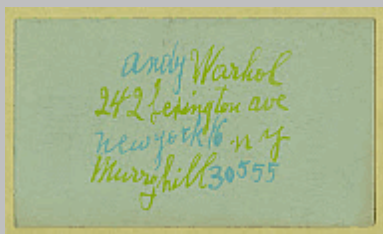 andy Warhol
242 Lexington ave
newyork 16 n y
Murryhill 30555